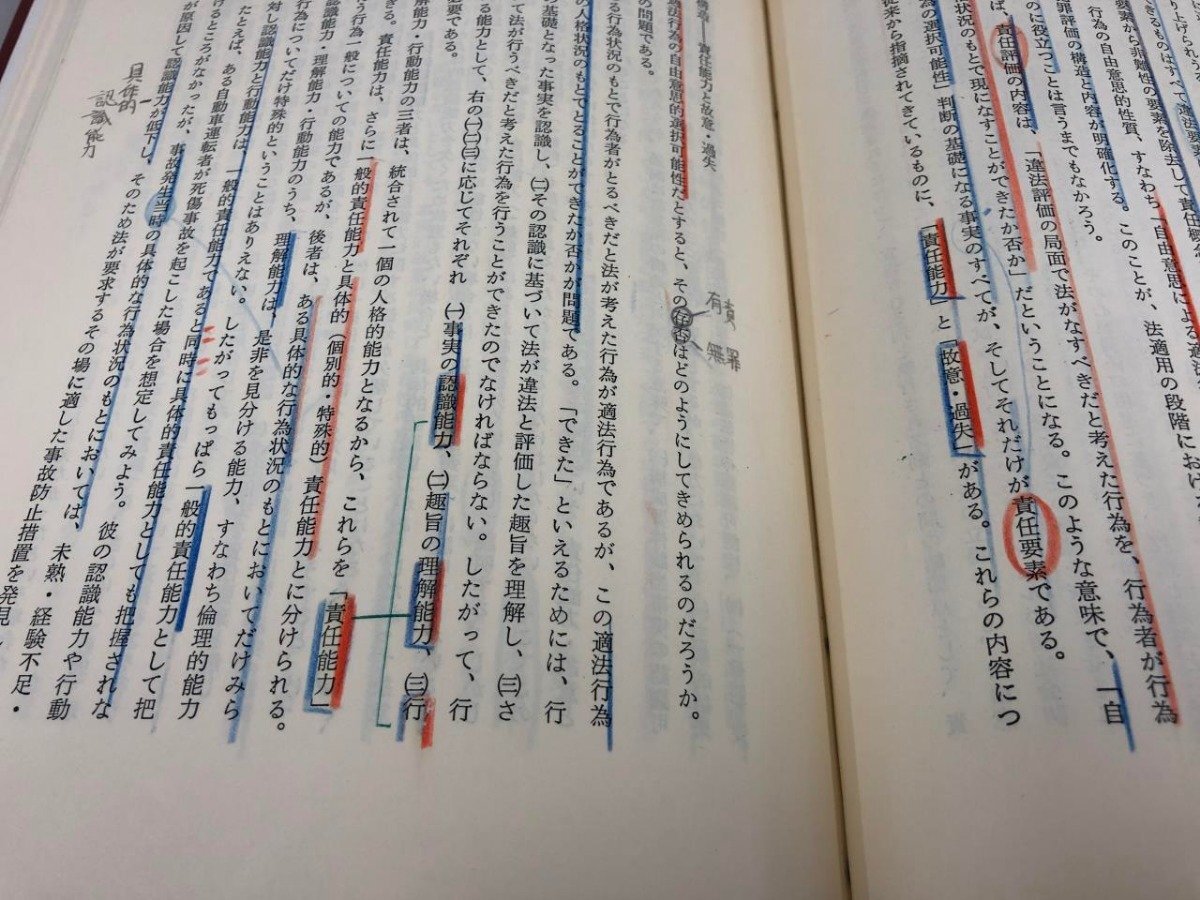 り上げられよう
きるものはすべて違法要素
要素から非難性の要素を除去して責任概念
行為の自由意思的性質、すなわち「自由意思による適法
罪評価の構造と内容が明確化する。このことが、法適用の段階におけ
のに役立つことは言うまでもなかろう。
ば、責任評価の内容は、「違法評価の局面で法がなすべきだと考えた行為を、行為者が行為
状況のもとで現になすことができたか否か」だということになる。このような意味で、「自
為の選択可能性」判断の基礎になる事実のすべてが、そしてそれだけが責任要素である。
従来から指摘されてきているものに、「責任能力」と「故意・過失」がある。これらの内容につ
有責
無罪
構造――責任能力と故意・過失
適法行為の自由意思的選択可能性だとすると、その存否はどのようにしてきめられるのだろうか。
の問題である。
る行為状況のもとで行為者がとるべきだと法が考えた行為が適法行為であるが、この適法行為
の人格状況のもとでとることができたか否かが問題である。「できた」といえるためには、行
の基礎となった事実を認識し、㈡その認識に基づいて法が違法と評価した趣旨を理解し、㈢さ
て法が行うべきだと考えた行為を行うことができたのでなければならない。したがって、行
る能力として、右の㈠㈡㈢に応じてそれぞれ ㈠事実の認識能力、㈡趣旨の理解能力、㈢行
必要である。
解能力・行動能力の三者は、統合されて一個の人格的能力となるから、これらを「責任能力」
きる。責任能力は、さらに一般的責任能力と具体的（個別的・特殊的）責任能力とに分けられる。
う行為一般についての能力であるが、後者は、ある具体的な行為状況のもとにおいてだけみら
認識能力・理解能力・行動能力のうち、理解能力は、是非を見分ける能力、すなわち倫理的能力
行為についてだけ特殊的ということはありえない。したがってもっぱら一般的責任能力として把
対し認識能力と行動能力は、一般的責任能力であると同時に具体的責任能力としても把握されな
たとえば、ある自動車運転者が死傷事故を起こした場合を想定してみよう。彼の認識能力や行動
けるところがなかったが、事故発生当時の具体的な行為状況のもとにおいては、未熟・経験不足・
が原因して認識能力が低下し、そのため法が要求するその場に適した事故防止措置を発見し
具体的
認識能力